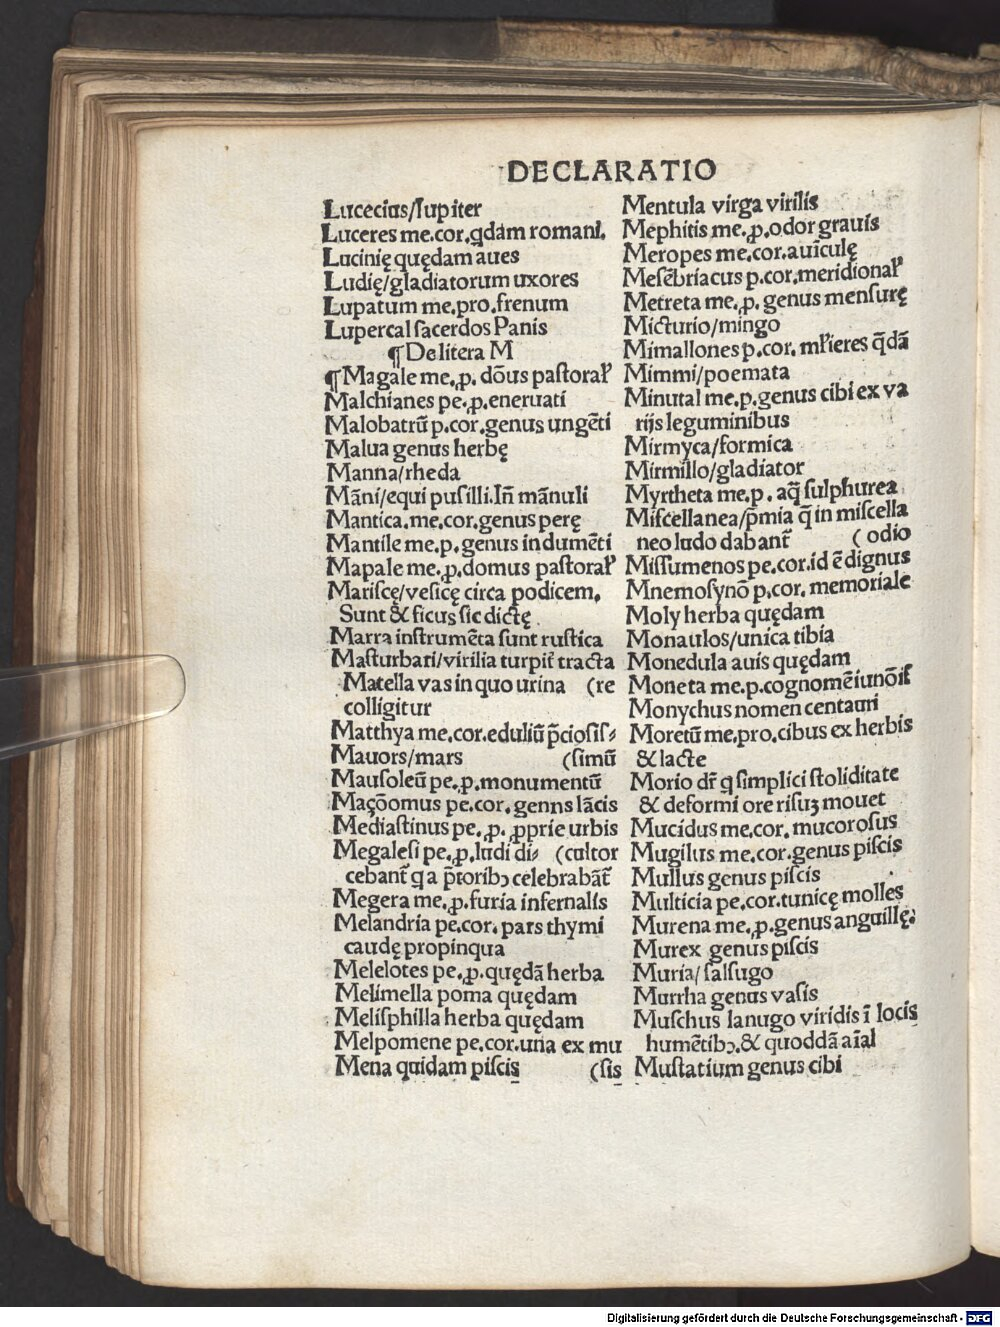 DECLARATIO
Lucecius/Iupiter
Luceres me.cor.qdam romani.
Lucinię quędam aues
Ludię/gladiatorum uxores
Lupatum me.pro.frenum
Lupercal sacerdos Panis
¶De litera M
¶Magale me.ꝓ. dõus pastoralꝭ
Malchianes pe.ꝓ.eneruati
Malobatrũ p.cor.genus ungẽti
Malua genus herbę
Manna/rheda
Mãni/equi pusilli.Iñ mãnuli
Mantica.me.cor.genus perę
Mantile me.p.genus indumẽti
Mapale me.ꝓ.domus pastoralꝭ
Mariscę/vesicę circa podicem.
Sunt & ficus sic dictę
Marra instrumẽta sunt rustica
Masturbari/virilia turpit̃ tracta
Matella vas in quo urina (re
colligitur
Matthya me.cor.eduliũ p̃ciosis⸗
Mauors/mars (simũ
Mausoleũ pe.ꝓ.monumentũ
Maçõomus pe.cor.genns lãcis
Mediastinus pe.ꝓ. ꝓprie urbis
Megalesi pe.ꝓ.ludi di⸗ (cultor
cebant̃ q a p̃toribꝫ celebrabãt̃
Megera me.ꝓ.furia infernalis
Melandria pe.cor.pars thymi
caudę propinqua
Melelotes pe.ꝓ.quędã herba
Melimella poma quędam
Melisphilla herba quędam
Melpomene pe.cor.una ex mu
Mena quidam piscis (sis
Mentula virga virilis
Mephitis me.ꝓ.odor grauis
Meropes me.cor.auiculę
Mesẽbriacus p.cor.meridionalꝭ
Metreta me.ꝓ. genus mensurę
Micturio/mingo
Mimallones p.cor. mlꝭieres q̃dã
Mimmi/poemata
Minutal me.p.genus cibi ex va
rijs leguminibus
Mirmyca/formica
Mirmillo/gladiator
Myrtheta me.p. aq̃ sulphurea
Miscellanea/p̃mia q̃ in miscella
neo ludo dabant̃ (odio
Missumenos pe.cor.id ẽ dignus
Mnemosynõ p.cor. memoriale
Moly herba quędam
Monaulos/unica tibia
Monedula auis quędam
Moneta me.p.cognomẽ iunõis
Monychus nomen centauri
Moretũ me.pro.cibus ex herbis
& lacte
Morio dr̃ q simplici stoliditate
& deformi ore risuꝫ mouet
Mucidus me.cor. mucorosus
Mugilus me.cor.genus piscis
Mullus genus piscis
Multicia pe.cor.tunicę molles
Murena me.ꝓ.genus anguillę.
Murex genus piscis
Muria/salsugo
Murrha genus vasis
Muschus lanugo viridis ĩ locis
humẽtibꝫ.& quoddã aĩal
Mustatium genus cibi
Digitalisierung gefördert durch die Deutsche Forschungsgemeinschaft - DFG